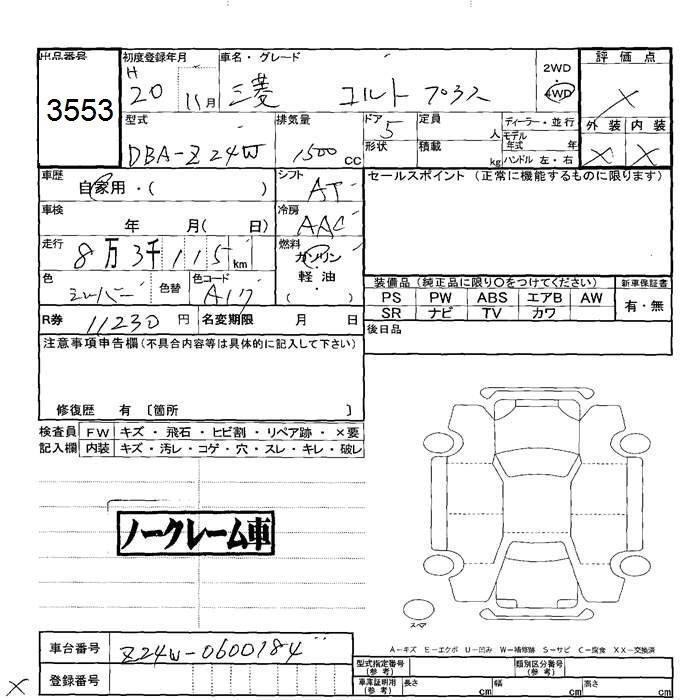 出品番号 初度登録年月 車名・グレード 2WD 評価点
3553 H 20 11月 三菱 コルト プラス 4WD ×
型式 排気量 ドア 5 定員 人 ディーラー・並行 外装 内装
DBA-Z24W 1500cc 形状 積載 kg モデル年式 年 ハンドル 左・右 × ×
車歴 自家用・( ) シフト AT セールスポイント (正常に機能するものに限ります)
車検 年 月( 日) 冷房 AAC
走行 8万3千115km 燃料 ガソリン・軽油 ( )
色 シルバー 色替 色コード A17 装備品 (純正品に限り○をつけてください) 新車保証書
PS PW ABS エアB AW 有・無
SR ナビ TV カワ
R券 11230円 名変期限 月 日 後日品
注意事項申告欄(不具合内容等は具体的に記入して下さい)
修復歴 有 〔箇所 〕
検査員 FW キズ・飛石・ヒビ割・リペア跡・×要
記入欄 内装 キズ・汚レ・コゲ・穴・スレ・キレ・破レ
ノークレーム車
スペア
A-キズ E-エクボ U-凹み W-補修跡 S-サビ C-腐食 XX-交換済
車台番号 Z24W-0600184
型式指定番号(参考) 類別区分番号(参考)
× 登録番号 車庫証明用(参考) 長さ cm 幅 cm 高さ cm